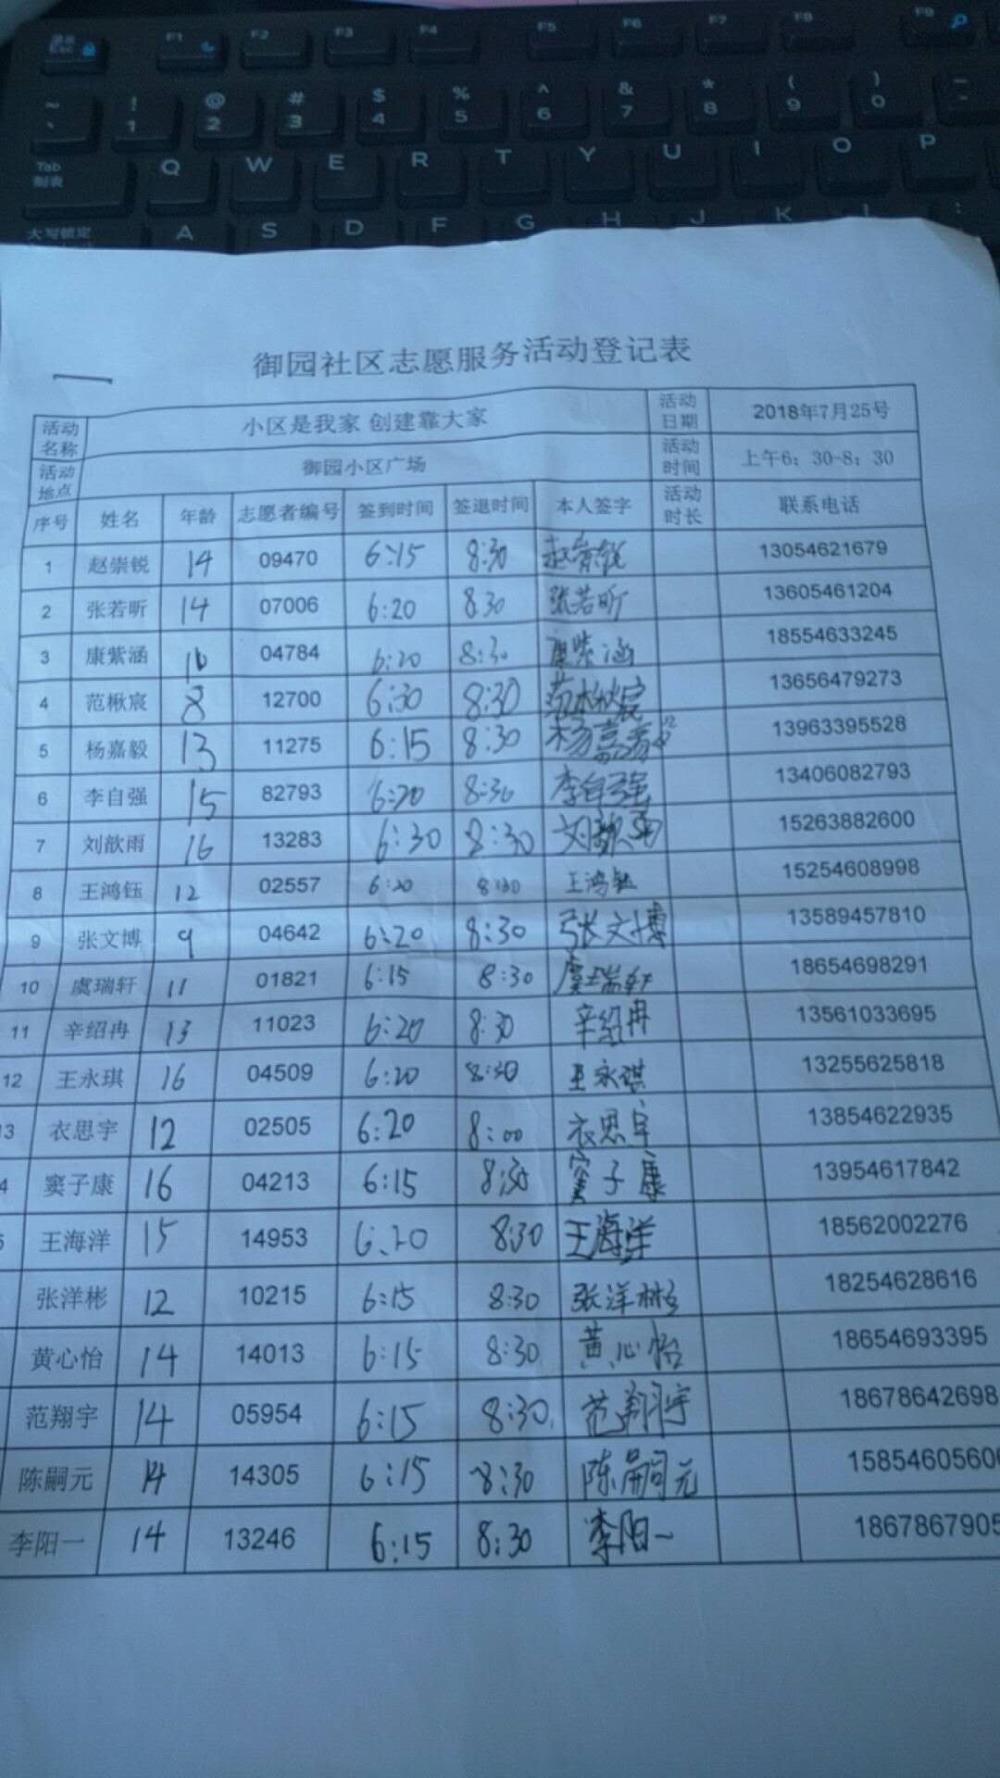 F1 F2 F3 F4 F5 F6 F7 F8 F9
~ ! @ # $ % ^ & * ( ) _
` 1 2 3 4 5 6 7 8 9 0 -
Tab 制表 Q W E R T Y U I O P
大写锁定 A S D F G H J K L :
御园社区志愿服务活动登记表
活动名称 小区是我家 创建靠大家 活动日期 2018年7月25号
活动地点 御园小区广场 活动时间 上午6：30-8：30
序号 姓名 年龄 志愿者编号 签到时间 签退时间 本人签字 活动时长 联系电话
1 赵崇锐 14 09470 6:15 8:30 赵崇锐 13054621679
2 张若昕 14 07006 6:20 8:30 张若昕 13605461204
3 康紫涵 16 04784 6:20 8:30 康紫涵 18554633245
4 范楸宸 8 12700 6:30 8:30 范楸宸 13656479273
5 杨嘉毅 13 11275 6:15 8:30 杨嘉毅 13963395528
6 李自强 15 82793 6:20 8:30 李自强 13406082793
7 刘歆雨 16 13283 6:30 8:30 刘歆雨 15263882600
8 王鸿钰 12 02557 6:20 8:30 王鸿钰 15254608998
9 张文博 9 04642 6:20 8:30 张文博 13589457810
10 虞瑞轩 11 01821 6:15 8:30 虞瑞轩 18654698291
11 辛绍冉 13 11023 6:20 8:30 辛绍冉 13561033695
12 王永琪 16 04509 6:20 8:30 王永琪 13255625818
3 衣思宇 12 02505 6:20 8:00 衣思宇 13854622935
4 窦子康 16 04213 6:15 8:30 窦子康 13954617842
5 王海洋 15 14953 6:20 8:30 王海洋 18562002276
张洋彬 12 10215 6:15 8:30 张洋彬 18254628616
黄心怡 14 14013 6:15 8:30 黄心怡 18654693395
范翔宇 14 05954 6:15 8:30 范翔宇 18678642698
陈嗣元 14 14305 6:15 8:30 陈嗣元 1585460560
李阳一 14 13246 6:15 8:30 李阳一 1867867905